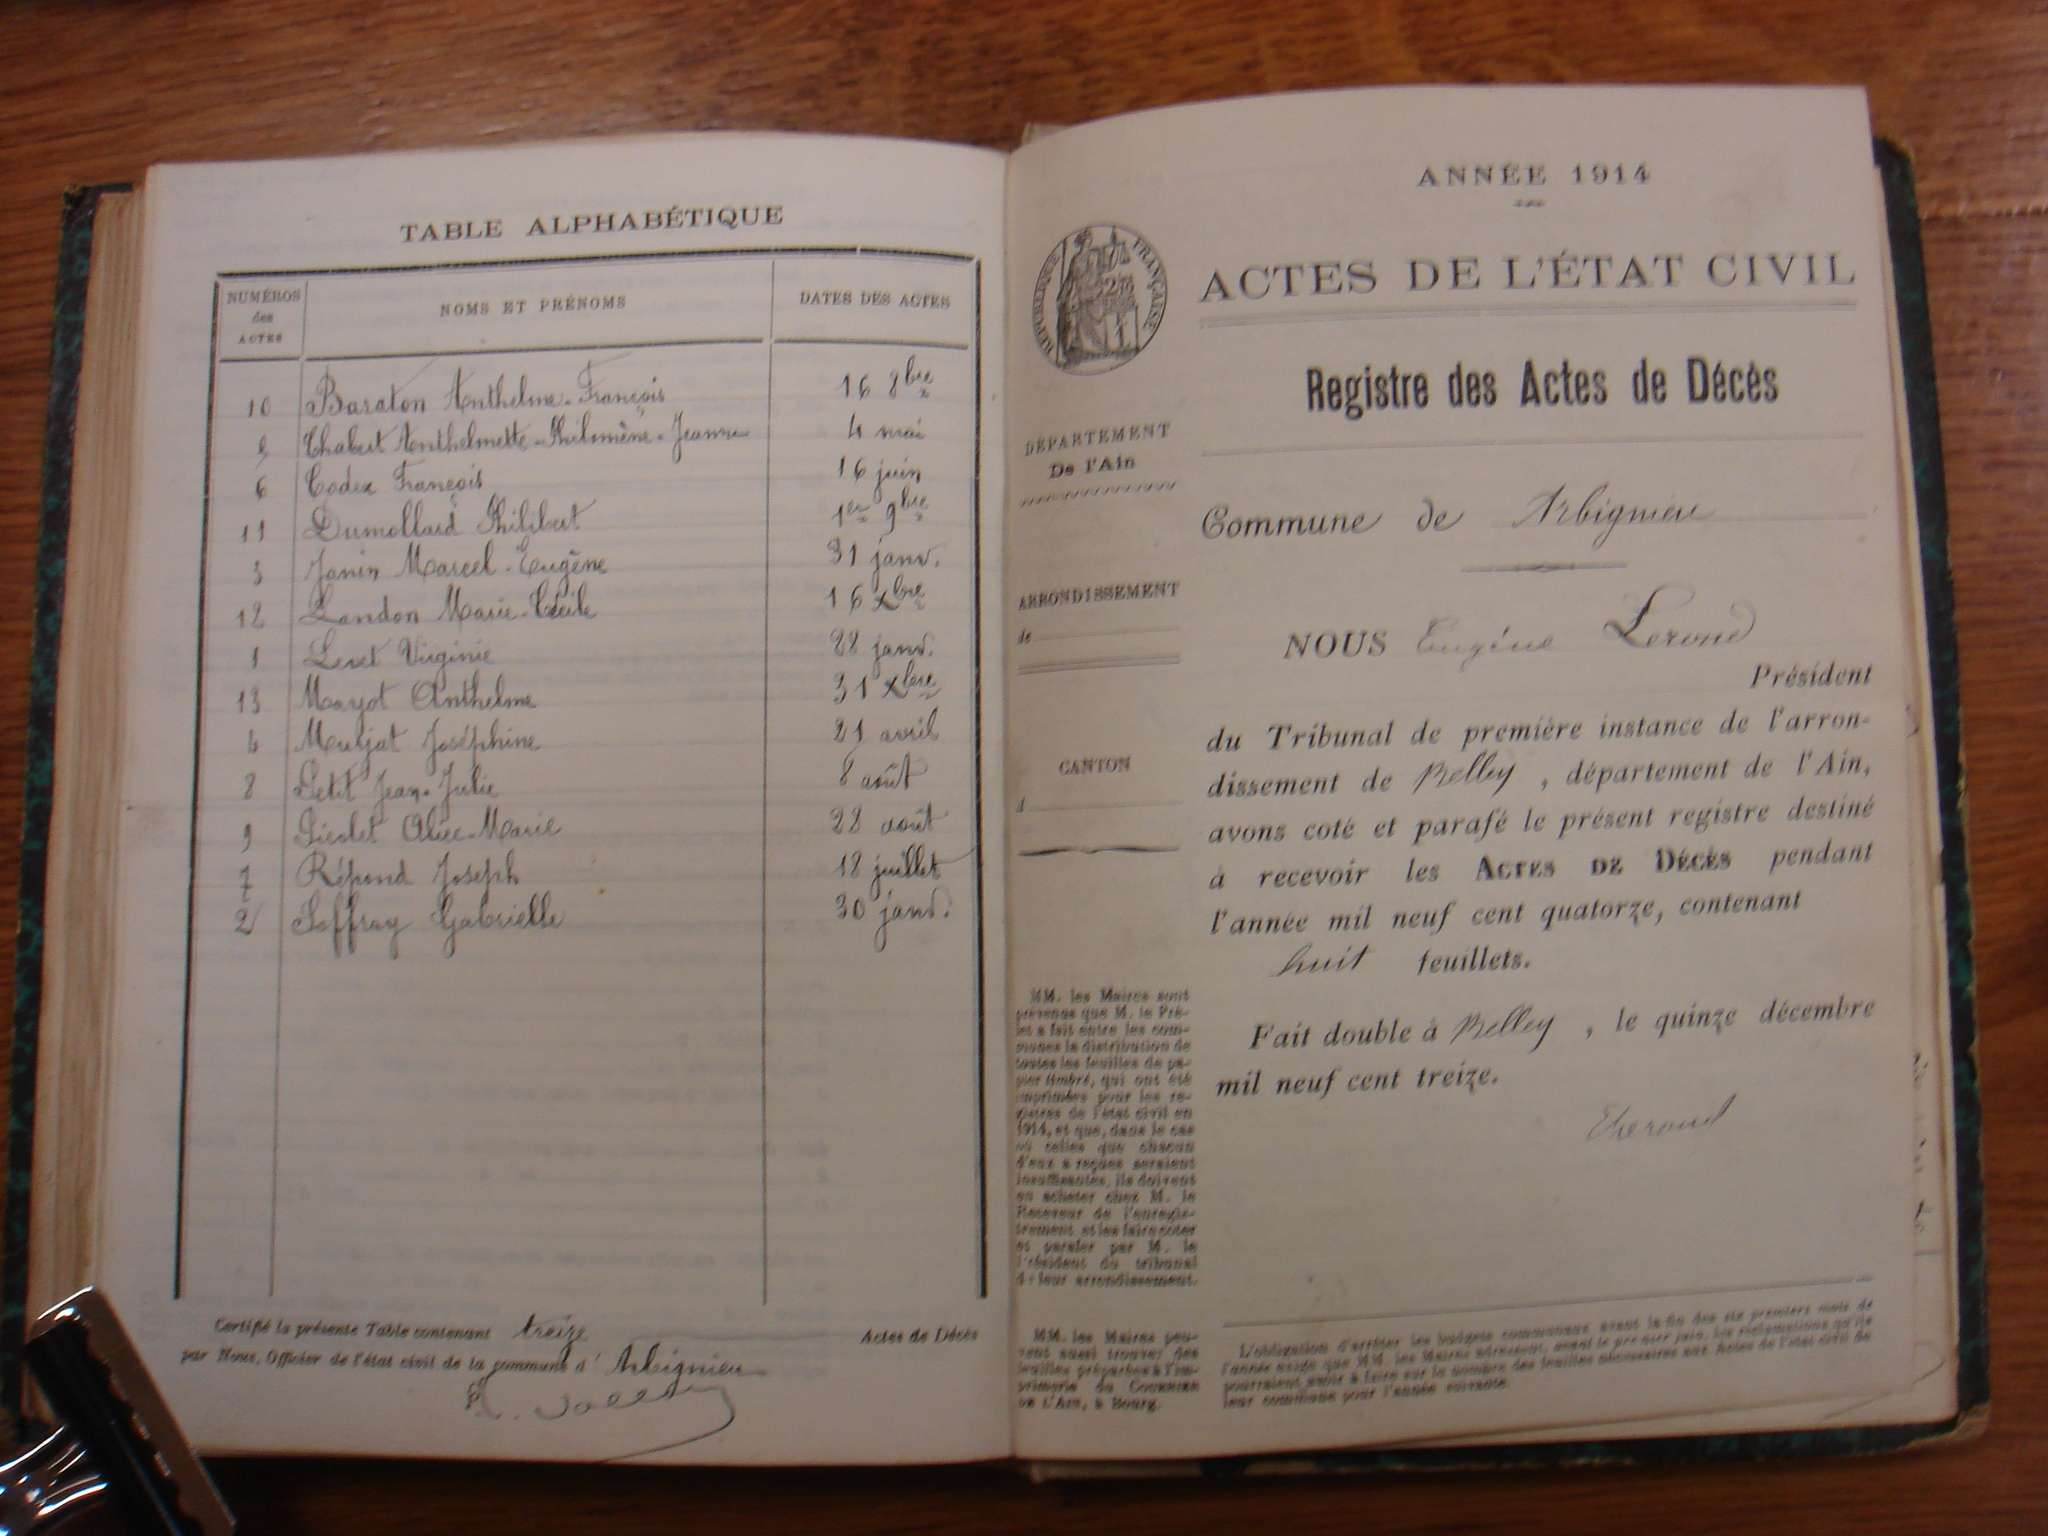 TABLE ALPHABÉTIQUE
NUMÉROS des ACTES NOMS ET PRÉNOMS DATES DES ACTES
10 Baraton Anthelme-François 16 8bre
5 Chabert Anthelmette-Philomène-Jeanne 4 mai
6 Codex François 16 juin
11 Dumollard Philibert 1er 9bre
3 Janin Marcel-Eugène 31 janv.
12 Landon Marie-Cécile 16 Xbre
1 Leret Virginie 28 janv.
13 Mayot Anthelme 31 Xbre
4 Murjat Joséphine 21 avril
8 Petit Jean-Julie 8 août
9 Picolet Alice-Marie 28 août
7 Répond Joseph 18 juillet
2 Soffray Gabrielle 30 janv.
Certifié la présente Table contenant treize Actes de Décès
par Nous, Officier de l'état civil de la commune d'Arbignieu
ANNÉE 1914
RÉPUBLIQUE FRANÇAISE
ACTES DE L'ÉTAT CIVIL
Registre des Actes de Décès
DÉPARTEMENT
De l'Ain
ARRONDISSEMENT
de
CANTON
d
MM. les Maires sont
prévenus que M. le Pré-
fet a fait entre les com-
munes la distribution de
toutes les feuilles de pa-
pier timbré, qui ont été
imprimées pour les re-
gistres de l'état civil en
1914, et que, dans le cas
où celles que chacun
d'eux a reçues seraient
insuffisantes, ils doivent
en acheter chez M. le
Receveur de l'enregis-
trement et les faire coter
et parafer par M. le
Président du tribunal
de leur arrondissement.
MM. les Maires peu-
vent aussi trouver des
feuilles préparées à l'im-
primerie du COURRIER
DE L'AIN, à Bourg.
Commune de Arbignieu
NOUS Eugène Lerond
Président
du Tribunal de première instance de l'arron-
dissement de Belley, département de l'Ain,
avons coté et parafé le présent registre destiné
à recevoir les ACTES DE DÉCÈS pendant
l'année mil neuf cent quatorze, contenant
huit feuillets.
Fait double à Belley, le quinze décembre
mil neuf cent treize.
ELerond
L'obligation d'arrêter les budgets communaux avant la fin des six premiers mois de
l'année exige que MM. les Maires adressent, avant le premier juin, les réclamations qu'ils
pourraient avoir à faire sur le nombre des feuilles nécessaires aux Actes de l'état civil de
leur commune pour l'année suivante.